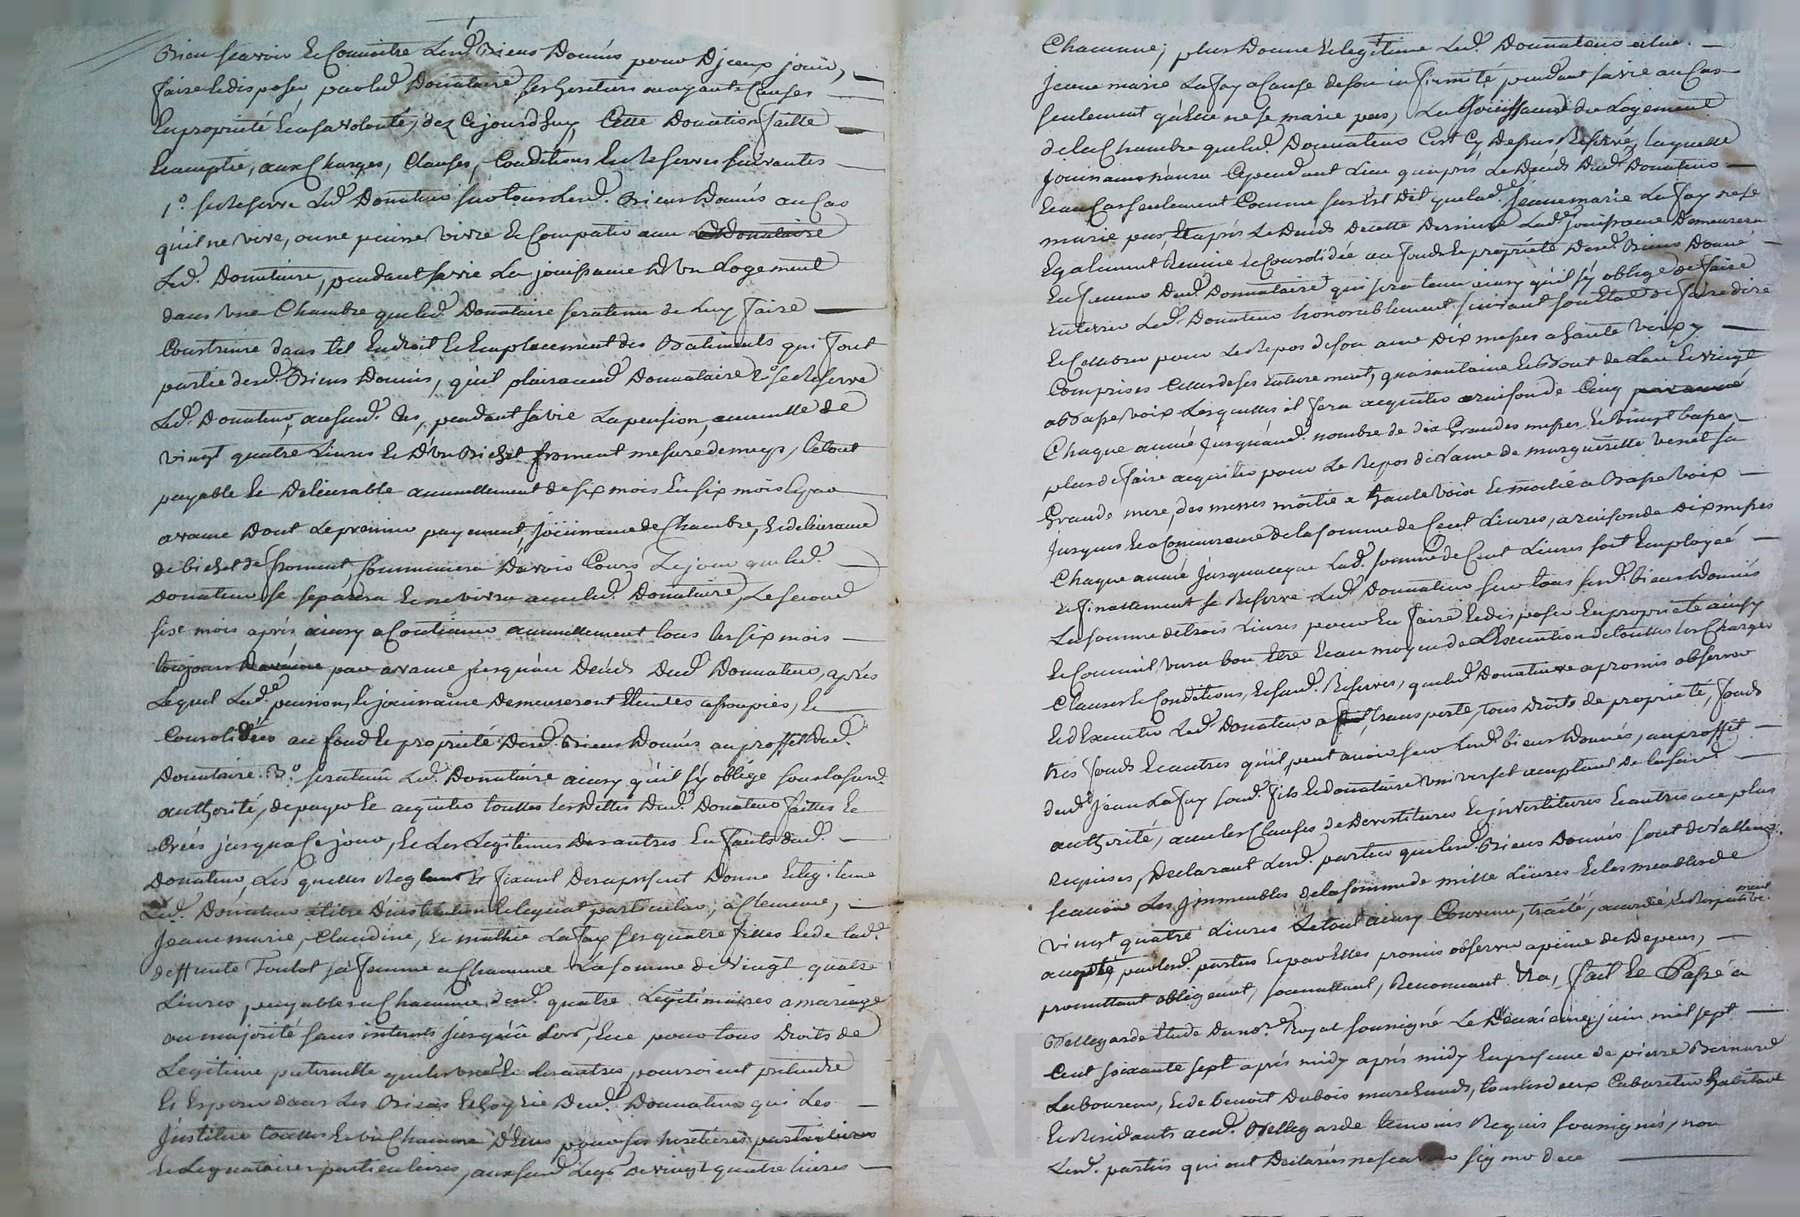 Bien scavoir et Connoitre Lesd. Biens Donnés pour D'jceux jouir,
faire et disposer par led. Donataire ses heritiers ou ayants Causes
En propriété Et a sa volonté, dez Ce jourd'huy, Cette Donation faitte
Et acceptée, aux Charges, Clauses, Conditions Et Reserves suivantes
1.° se Reserve Led. Donateur sur tous Lesd. Biens Donnés au Cas
qu'il ne vive, ou ne puisse vivre Et Compatir avec Led. Donataire
Led. Donataire, pendant sa vie La jouissance D'un Logement
dans une Chambre que led. Donataire sera tenu de Luy faire
Construire dans tel Endroit Et Emplacement des Batiments qui font
partie desd. Biens Donnés, qu'il plaira aud. Donataire 2.° se Reserve
Led. Donateur, aususd. Cas, pendant sa vie La pension, annuelle de
vingt quatre Livres Et D'un Bichet froment mesure de , le tout
payable Et Delivrable annuellement de six mois En six mois Et par
avance Dont Le premier payement, jouissance de Chambre, Et delivrance
de bichet de froment, Commencera D'avoir Cours Le jour que led.
Donateur se separera Et ne vivra avec led. Donataire, Le second
six mois après ainsy a Continuer annuellement tous les six mois
toujours par avance jusqu'au Decés Dud. Donnateur, après
Lequel Lad. pension, Et jouissance Demeureront Eteintes assoupies, Et
Consolidées au fond Et propriété Desd. Biens Donnés au proffit dud.
Donataire. 3.° sera tenu Led. Donataire ainsy qu'il s'y oblige sous la susd.
authorité, de payer Et acquitter touttes les Dettes Dud. Donateur faittes Et
Créés jusqu'a Ce jour, Et Les Legitimes Des autres Enfants dud.
Donateur, Lesquelles Reglant Et fixant Des a present Donne Et legitime
Led. Donateur a titre D'institution Et legat particulier, a Clemence,
Jeanne marie, Claudine, Et mathie Lafay ses quatre filles Et de lad.
deffunte Toulot sa femme a Chacune La somme de vingt quatre
Livres, payables a Chacune desd. quatre Legitimaires a mariage
ou majorité sans interets jusqu'a lors, Et ce pour tous Droits de
Legitime paternelle que les unes Et les autres pourroient pretendre
Et Esperer dans Les Biens Et hoyrie Dud. Donnateur qui Les
Jnstitue touttes Et une Chacune D'Elles pour ses heritieres particulieres
Et Legataires particulieres, aux susd. Legs De vingt quatre livres
Chacune; plus Donne Et legitime Led. Donnateur a lad.
jeanne marie Lafay a Cause de son infirmité pendant sa vie au Cas
seulement qu'Elle ne se marie pas, La Jouissance du Logement
de la Chambre que led. Donnateur s'est Cy Depuis Reservé, laquelle
jouissance n'aura Cependant Lieu qu'après Le Decés Dud. Donateur
Et au Cas seulement Comme sus Est Dit que lad. jeanne marie Lafay ne se
marie pas, Et après Le Decés De cette Derniere Lad. jouissance Demeurera
Egalement Reunie Et Consolidée au fond Et propriété Desd. Biens Donné
En faveur Dud. Donnataire qui sera tenu ainsy qu'il s'y oblige de faire
Enterrer Led. Donateur honorablement suivant son Etat de faire dire
Et Celebrer pour Le Repos de son ame Dix messes a haute voix
Comprises Celles de ses Enterrement, quarantaine Et Bout de L'an Et vingt
a Basse voix Lesquelles il fera acquitter a raison de Cinq par année
Chaque année jusqu'aud. nombre de dix Grandes messes Et vingt basses
plus de faire acquitter pour Le Repos de L'ame de marguerite sa
Grande mere, des messes moitié a haute voix Et moitié a Basse voix
jusques Et a Concurrence de la somme de Cent Livres, a raison de Dix messes
Chaque année jusqu'a ce que Lad. somme de Cent Livres soit Employeé
Et finallement se Reserve Led. Donnateur sur tous sesd. biens Donnés
La somme de trois Livres pour En faire Et disposer En propriété ainsy
Et Comme il verra bon Etre Et au moyen de L'Execution de touttes les Charges
Clauses Et Conditions, Et susd. Reserves, que led. Donataire a promis observer
Et d'Executer Led. Donateur a transporté, tous Droits de propriété, fonds
tres fonds Et autres qu'il peut avoir sur Lesd. biens Donnés, au proffit
dud. jean Lafay sond. fils Et donataire universel acceptant De la susd.
authorité, avec les Clauses de Devestitures Et jnvestitures Et autres a ce plus
Requises, Declarant Lesd. parties que lesd. Biens Donnés sont de valleur,
scavoir Les Jmmeubles de la somme de mille Livres Et les meubles de
vingt quatre Livres Le tout ainsy Convenu, traité, accordé Et respectivement
accepté, par lesd. parties Et par Elles promis observer a peine de Depens,
promettant obligeant, soumettant, Renonceant. Fait Et Passé a
Bellegarde Etude Du no.re Royal soussigné Le Deuxieme juin mil sept
Cent soixante sept après midy après midy En presence de pierre Bernard
Laboureur, Et de benoit Dubois marchand, tous les deux Cabaretier habitant
Et Residants aud. Bellegarde temoins Requis soussignés, non
Lesd. parties qui ont Declarés ne scavoir signer de ce